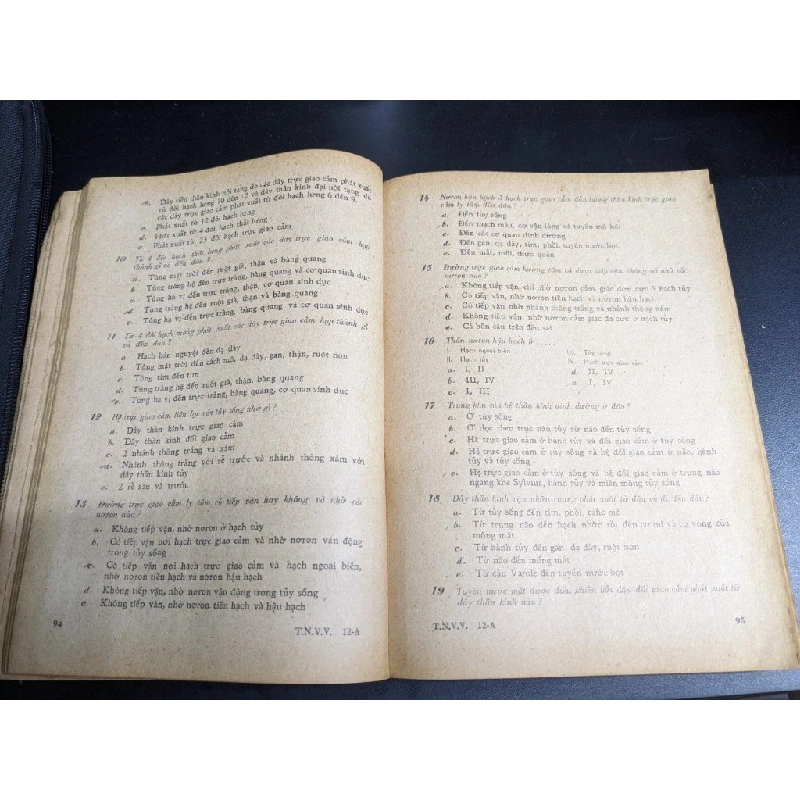 Dây tiền thân kinh nội tạng do các dây trực giao cảm phát xuất
và đôi hạch lưng 10 đến 12 và dây thần kinh đại nội tạng do
các dây trực giao cảm phát xuất từ đôi hạch lưng 6 đến 9.
c. Phát xuất từ 12 đôi hạch lưng
d. Phát xuất từ 4 đôi hạch thắt lưng
e. Phát xuất từ 23 đôi hạch trực giao cảm.
10 Từ 4 đôi hạch thắt lưng phát xuất các dây trực giao cảm họp
thành gì và đến đâu ?
a. Tùng mặt trời đến ruột già, thận và bàng quang
b. Tùng tràng hệ đến trực tràng, bàng quang và cơ quan sinh dục
c. Tùng hạ vị đến trực tràng, thận, cơ quan sinh dục
d. Tùng tràng hệ đến ruột già, thận và bàng quang
e. Tùng hạ vị đến trực tràng, bàng quang và cơ quan sinh dục
11 Từ 4 đôi hạch cùng phát xuất các dây trực giao cảm họp thành gì
và đến đâu ?
a. Hạch bán nguyệt đến dạ dày
b. Tùng mặt trời đến cách mô, dạ dày, gan, thận, ruột non
c. Tùng tim đến tim
d. Tùng tràng hệ đến ruột già, thận, bàng quang
e. Tùng hạ vị đến trực tràng, bàng quang, cơ quan sinh dục
12 Hệ trực giao cảm liên lạc với tủy sống nhờ gì ?
a. Dây thần kinh trực giao cảm
b. Dây thần kinh đối giao cảm
c. 2 nhánh thông trắng và xám
d. Nhánh thông trắng với rễ trước và nhánh thông xám với
dây thần kinh tủy
e. 2 rễ sau và trước.
13 Đường trực giao cảm ly tâm có tiếp vận hay không và nhờ các
nơron nào ?
a. Không tiếp vận, nhờ nơron ở hạch tủy
b. Có tiếp vận nơi hạch trực giao cảm và nhờ nơron vận động
trong tủy sống
c. Có tiếp vận nơi hạch trực giao cảm và hạch ngoại biên,
nhờ nơron tiền hạch và nơron hậu hạch
d. Không tiếp vận, nhờ nơron vận động trong tủy sống
e. Không tiếp vận, nhờ nơron tiền hạch và hậu hạch
94
T.N.V.V. 12-A
14 Nơron hậu hạch ở hạch trực giao cảm đến bằng thần kinh trực giao
cảm ly tâm đến đâu ?
a. Đến tủy sống
b. Đến mạch máu, cơ vận lông và tuyến mồ hôi
c. Đến các cơ quan dinh dưỡng
d. Đến gan, dạ dày, tim, phổi, tuyến nước bọt
e. Đến mắt, mũi, thực quản
15 Đường trực giao cảm hướng tâm có được tiếp vận không và nhờ có
nơron nào ?
a. Không tiếp vận, chỉ nhờ nơron cảm giác đơn cực ở hạch tủy
b. Có tiếp vận, nhờ nơron tiền hạch và nơron hậu hạch
c. Có tiếp vận nhờ nhánh thông trắng và nhánh thông xám
d. Không tiếp vận, nhờ nơron cảm giác đa cực ở hạch tủy
e. Cả bốn câu trên đều sai
16 Thân nơron hậu hạch ở .....
I. Hạch ngoại biên
III. Tủy sống
II. Hạch tủy
IV. Hạch trực giao cảm
a. I, II
d. II, IV
b. III, IV
e. I, IV
c. I, III
17 Trung khu của hệ thần kinh dinh dưỡng ở đâu ?
a. Ở tủy sống
b. Ở dọc theo trục não tủy từ não đến tủy sống
c. Hệ trực giao cảm ở hành tủy và đối giao cảm ở tủy sống
d. Hệ trực giao cảm ở tủy sống và hệ đối giao cảm ở não, hành
tủy và tủy sống
e. Hệ trực giao cảm ở tủy sống và hệ đối giao cảm ở trung não
ngang khe Sylvius, hành tủy và miền mông tủy sống
18 Dây thần kinh vận nhãn chung phát xuất từ đâu và đi đến đâu ?
a. Từ tủy sống đến tim, phổi, cách mô
b. Từ trung não đến hạch nhỡn rồi đến cơ mi và cơ vòng của
mống mắt
c. Từ hành tủy đến gan, dạ dày, ruột non
d. Từ não đến mống mắt
e. Từ cầu Varole đến tuyến nước bọt
19 Tuyến nước mắt được điều khiển bởi dây đối giao cảm phát xuất từ
dây thần kinh nào ?
T.N.V.V. 12-A
95